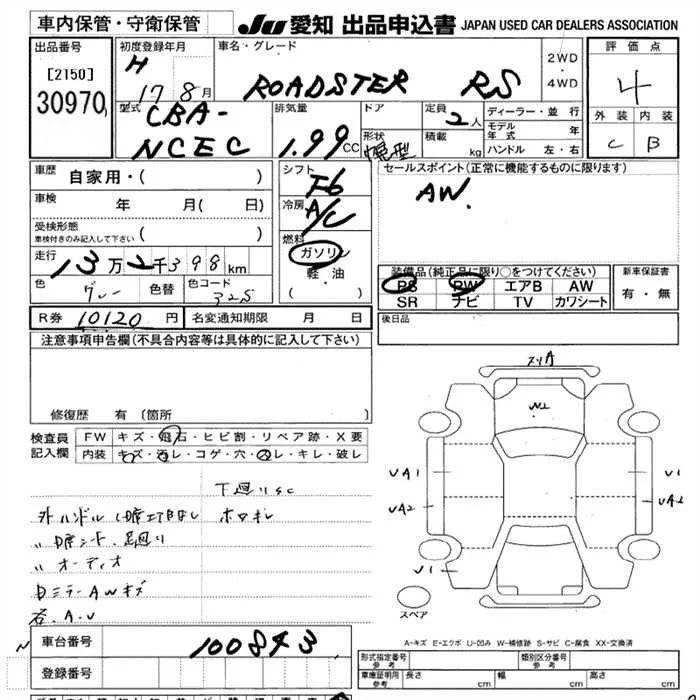 車内保管・守衛保管 JU 愛知 出品申込書 JAPAN USED CAR DEALERS ASSOCIATION
出品番号
[2150]
30970
初度登録年月
H 17 8月
車名・グレード
ROADSTER RS
2WD
・
4WD
評価点
4
外装 内装
C B
型式
CBA-
NCEC
排気量
1.99CC
ドア
形状
幌型
定員
2人
積載
kg
ディーラー・並行
モデル年式 年
ハンドル 左・右
車歴 自家用・( )
車検 年 月( 日)
受検形態
車検付きのみ記入して下さい ( )
走行 13万2千398km
色 グレー 色替 色コード 32S
シフト
F6
冷房
A/C
燃料
ガソリン
軽・油
( )
セールスポイント(正常に機能するものに限ります)
AW.
装備品(純正品に限り○をつけてください)
PS PW エアB AW
SR ナビ TV カワシート
新車保証書
有・無
R券 10120円 名変通知期限 月 日
後日品
注意事項申告欄(不具合内容等は具体的に記入して下さい)
修復歴 有 〔箇所
検査員
記入欄
FW キズ・飛石・ヒビ割・リペア跡・X要
内装 キズ・汚レ・コゲ・穴・スレ・キレ・破レ
下廻りSC
〃オーディオ
スリA
W2
UA1
UA2
V1
V1
スペア
A-キズ E-エクボ U-凹み W-補修跡 S-サビ C-腐食 XX-交換済
車台番号 100843
登録番号
形式指定番号
参考
類別区分番号
参考
車庫証明用
参考
長さ cm 幅 cm 高さ cm